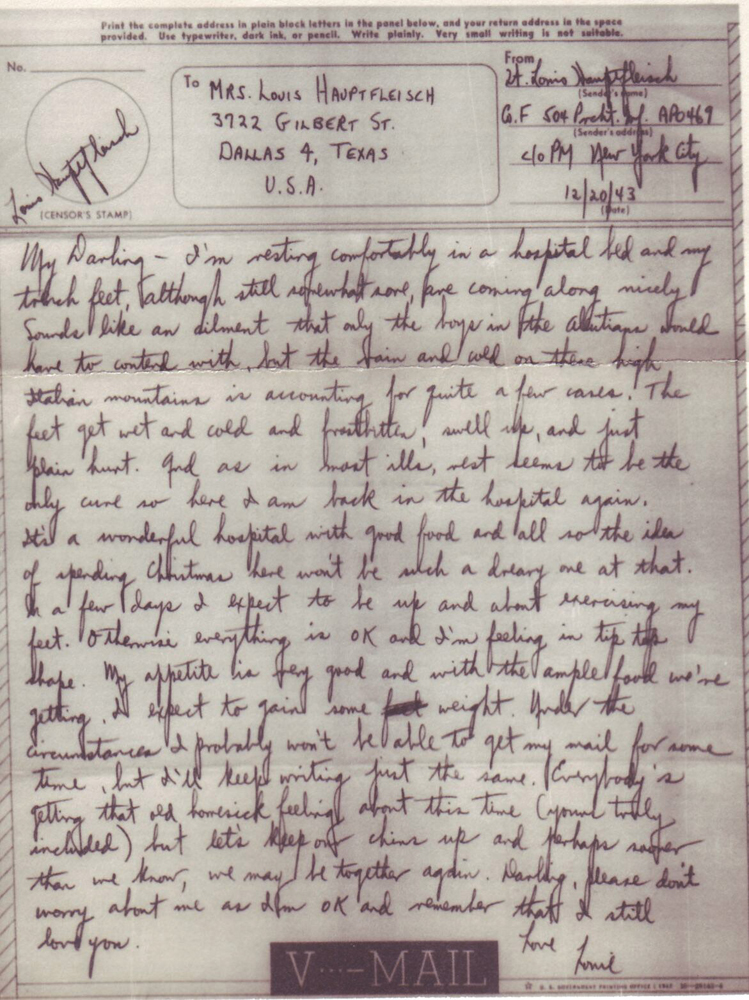 Print the complete address in plain block letters in the panel below, and your return address in the space
provided. Use typewriter, dark ink, or pencil. Write plainly. Very small writing is not suitable.
No.
To
MRS. LOUIS HAUPTFLEISCH
3722 GILBERT ST.
DALLAS 4, TEXAS
U.S.A.
From
Lt. Louis Hauptfleisch
(Sender's name)
Co.F 504 Prcht. Inf. APO469
(Sender's address)
c/o PM New York City
12/20/43
(Date)
Louis Hauptfleisch
(CENSOR'S STAMP)
My Darling - I'm resting comfortably in a hospital bed and my
trench feet, although still somewhat sore, are coming along nicely.
Sounds like an ailment that only the boys in the Aleutians would
have to contend with, but the rain and cold on these high
Italian mountains is accounting for quite a few cases. The
feet get wet and cold and frostbitten, swell up, and just
plain hurt. And as in most ills, rest seems to be the
only cure so here I am back in the hospital again.
It's a wonderful hospital with good food and all so the idea
of spending Christmas here won't be such a dreary one at that.
In a few days I expect to be up and about exercising my
feet. Otherwise everything is OK and I'm feeling in tip top
shape. My appetite is very good and with the ample food we're
getting, I expect to gain some weight. Under the
circumstances I probably won't be able to get my mail for some
time, but I'll keep writing just the same. Everybody's
getting that old homesick feeling about this time (yours truly
included) but let's keep our chins up and perhaps sooner
than we know, we may be together again. Darling, please don't
worry about me as I'm OK and remember that I still
love you.
Love
Louie
V···—MAIL
☆ U. S. GOVERNMENT PRINTING OFFICE : 1943